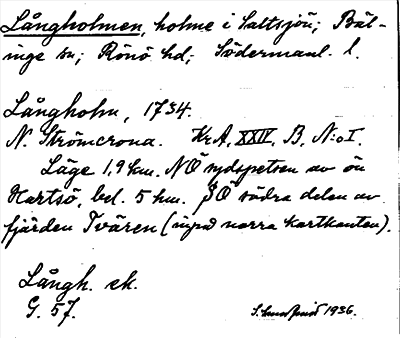 Långholmen, holme i Saltsjön; Bäl-
inge sn; Rönö hd; Södermanl. l.
Långholm, 1734.
N. Strömcrona. KrA, XXIV, B, N:o I.
Läge 1,9 km. NÖ sydspetsen av ön
Hartsö, bel. 5 km. SÖ södra delen av
fjärden Tvären (inpå norra kartkanten).
Långh. ek.
G. 57.
1936.